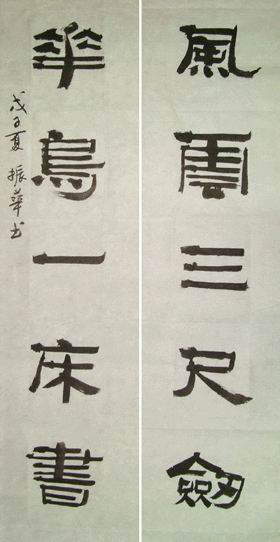 風雲三尺劍
華鳥一床書
戊子夏 振華书